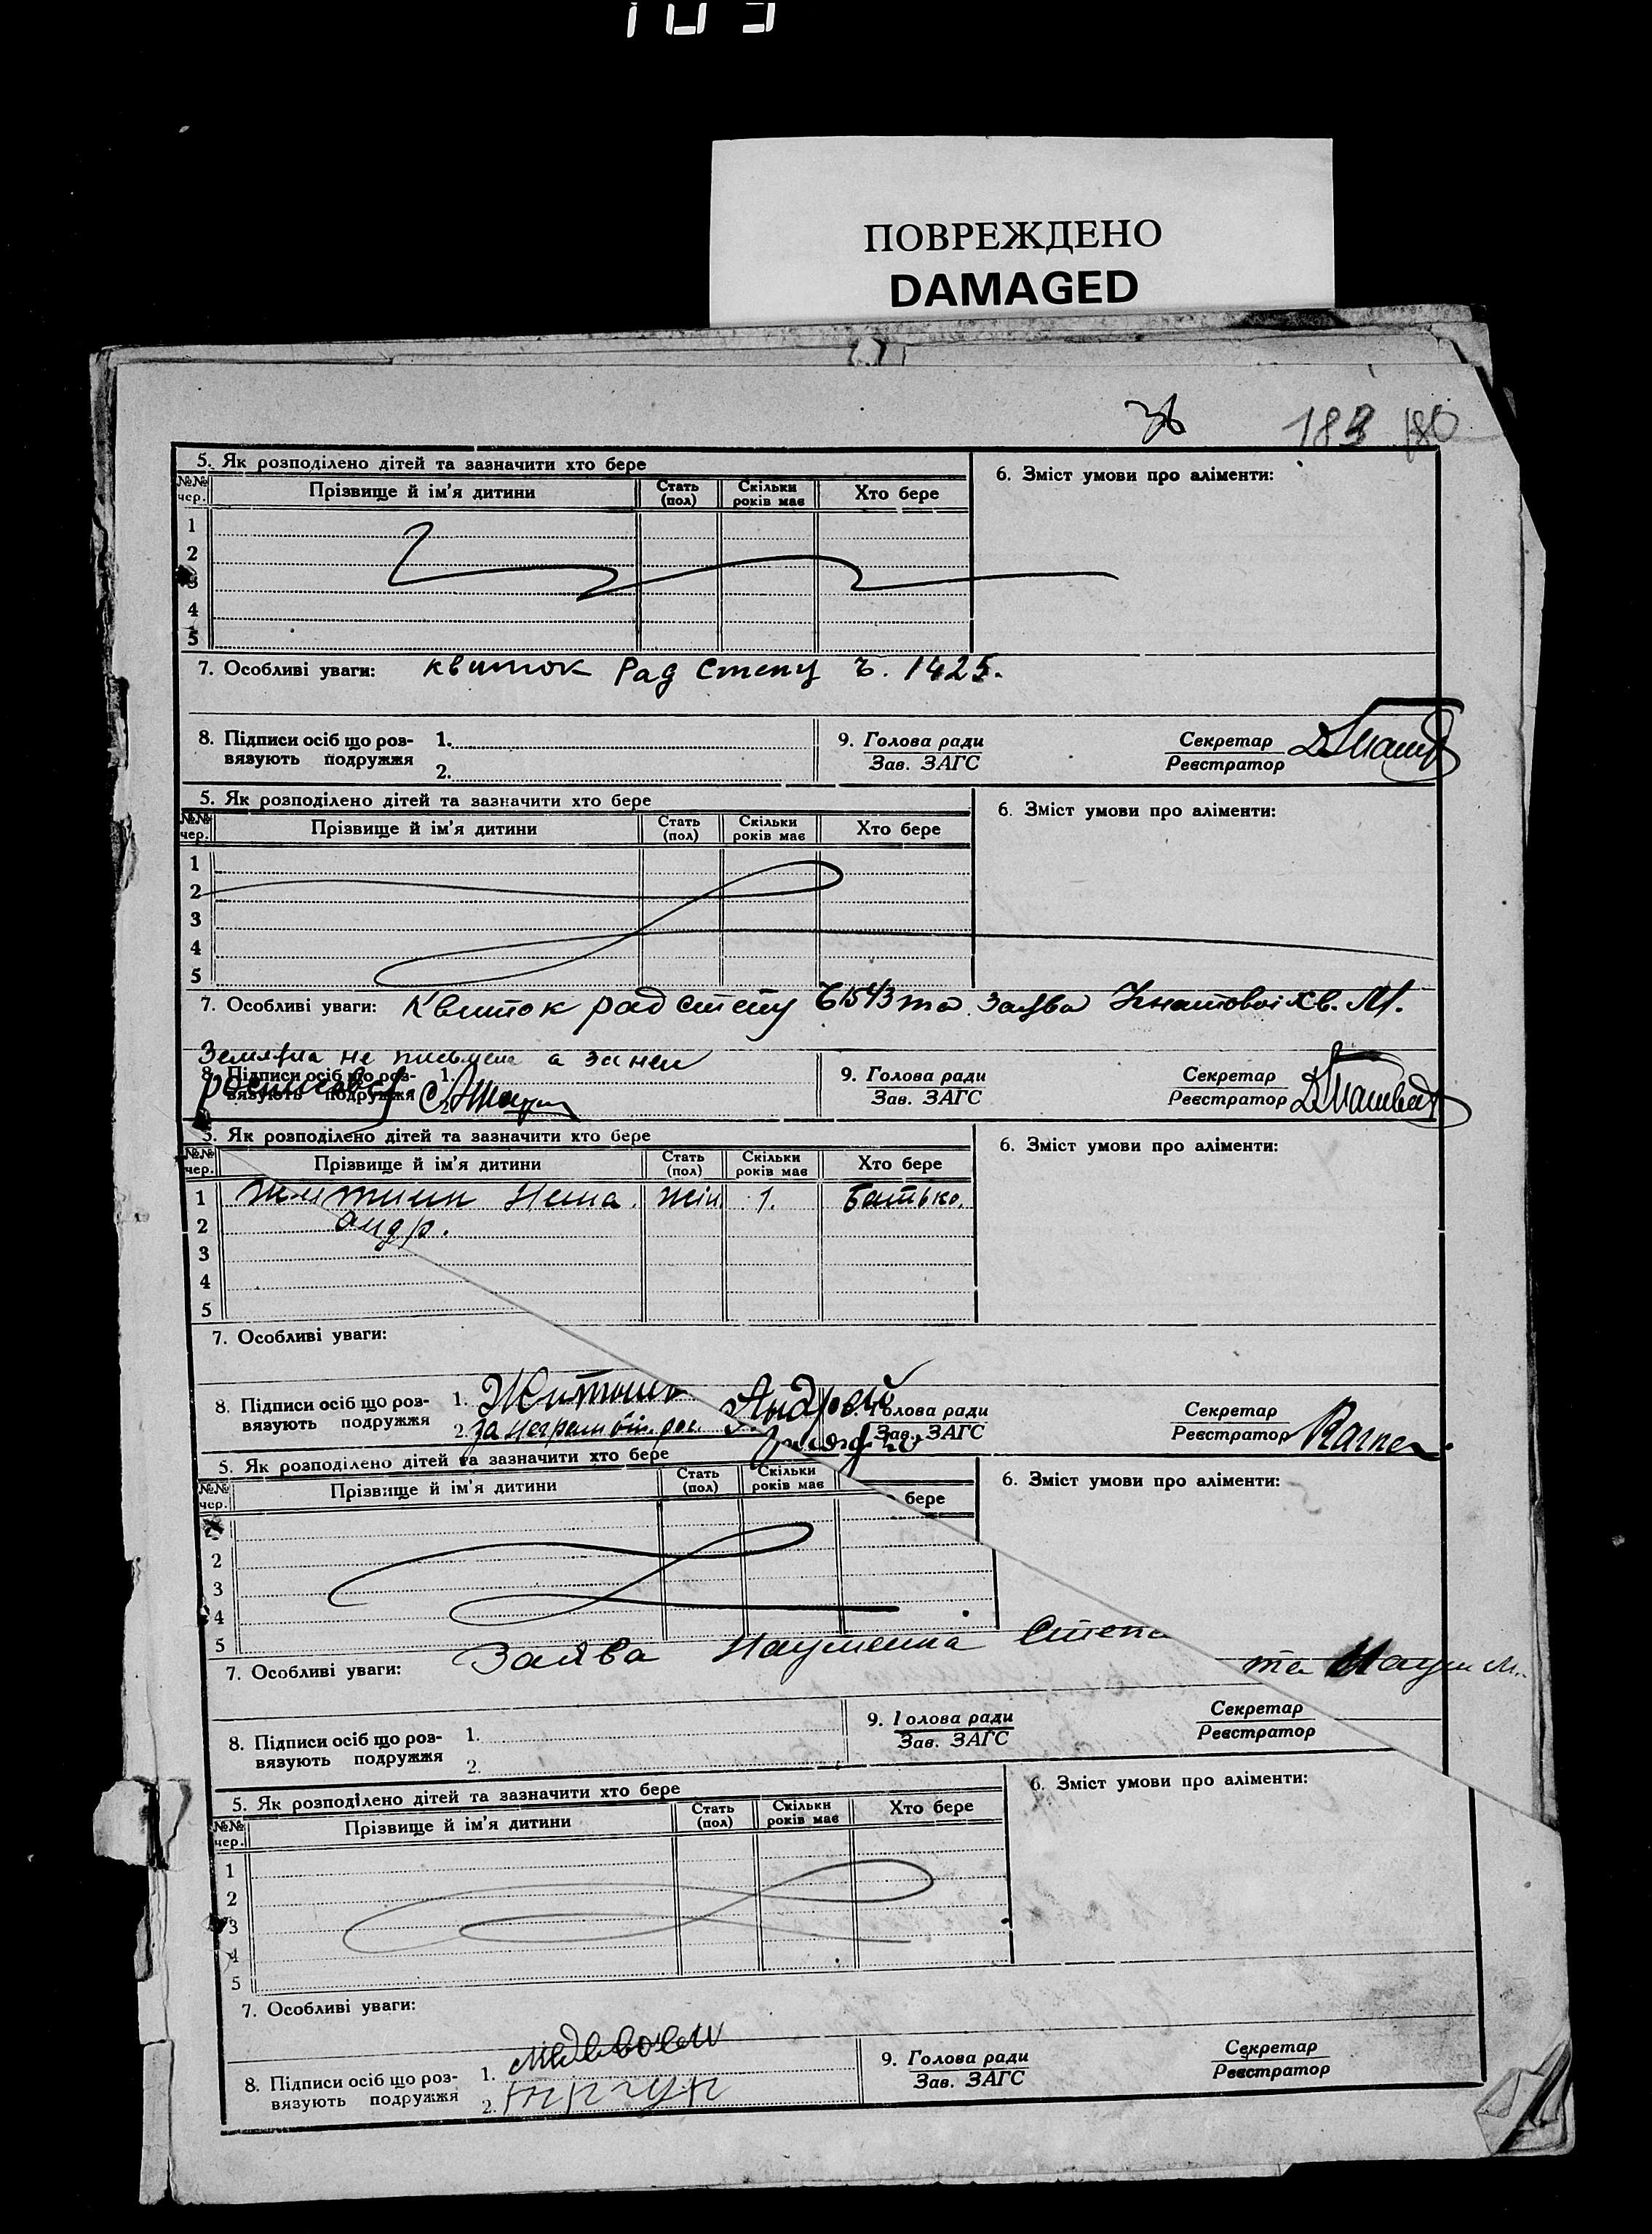 103
ПОВРЕЖДЕНО
DAMAGED
183 180
5. Як розподілено дітей та зазначити хто бере
6. Зміст умови про аліменти:
№№ чер. Прізвище й ім'я дитини Стать (пол) Скільки років має Хто бере
1
2
3
4
5
7. Особливі уваги: квиток Рад Степу Ч. 1425.
8. Підписи осіб що роз-
вязують подружжя
1.
2.
9. Голова ради
Зав. ЗАГС
Секретар
Реєстратор
5. Як розподілено дітей та зазначити хто бере
6. Зміст умови про аліменти:
№№ чер. Прізвище й ім'я дитини Стать (пол) Скільки років має Хто бере
1
2
3
4
5
7. Особливі уваги: Квиток рад степу Ч 1543 та заява Хв. М.
не письмена а за неи
8. Підписи осіб що роз-
вязують подружжя
1.
2.
9. Голова ради
Зав. ЗАГС
Секретар
Реєстратор
5. Як розподілено дітей та зазначити хто бере
6. Зміст умови про аліменти:
№№ чер. Прізвище й ім'я дитини Стать (пол) Скільки років має Хто бере
1 Нина жін. 1. батько.
2 Андр.
3
4
5
7. Особливі уваги:
8. Підписи осіб що роз-
вязують подружжя
1. Андрей
2. за
Голова ради
Зав. ЗАГС
Секретар
Реєстратор
5. Як розподілено дітей та зазначити хто бере
6. Зміст умови про аліменти:
№№ чер. Прізвище й ім'я дитини Стать (пол) Скільки років має бере
2
3
4
5
7. Особливі уваги: Заява Науменка Степа та Наум
8. Підписи осіб що роз-
вязують подружжя
1.
2.
9. Голова ради
Зав. ЗАГС
Секретар
Реєстратор
5. Як розподілено дітей та зазначити хто бере
6. Зміст умови про аліменти:
№№ чер. Прізвище й ім'я дитини Стать (пол) Скільки років має Хто бере
1
2
3
4
5
7. Особливі уваги:
8. Підписи осіб що роз-
вязують подружжя
1.
2.
9. Голова ради
Зав. ЗАГС
Секретар
Реєстратор